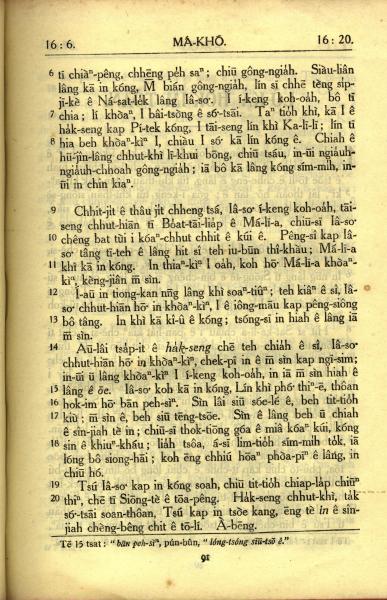 16 : 6.
MÁ-KHÓ.
16 : 20.
6 tī chiàⁿ-pêng, chhēng pe̍h saⁿ; chiū gông-ngia̍h. Siàu-liân
lâng kā in kóng, M̄ bián gông-ngia̍h, lín sī chhē tèng si̍p-
jī-kè ê Ná-sat-le̍k lâng Iâ-so͘. I í-keng koh-oa̍h, bô tī
7 chia; lí khòaⁿ, I bâi-tsòng ê só͘-tsāi. Taⁿ tio̍h khì, kā I ê
ha̍k-seng kap Pí-tek kóng, I tāi-seng lín khì Ka-lī-lī; lín tī
8 hia beh khòaⁿ-kìⁿ I, chiàu I só͘ kā lín kóng ê. Chiah ê
hū-jîn-lâng chhut-khì lī-khui bōng, chiū tsáu, in-ūi ngiauh-
ngiauh-chhoah gông-ngia̍h; iā bô kā lâng kóng sím-mi̍h, in-
ūi in chin kiaⁿ.
9 Chhit-ji̍t ê thâu ji̍t chheng tsá, Iâ-so͘ í-keng koh-oa̍h, tāi-
seng chhut-hiān tī Boa̍t-tāi-lia̍p ê Má-lī-a, chiū-sī Iâ-so͘
10 chêng bat tùi i kóaⁿ-chhut chhit ê kúi ê. Pêng-sî kap Iâ-
so͘ tâng tī-teh ê lâng hit sî teh iu-būn thî-khàu; Má-lī-a
11 khì kā in kóng. In thiaⁿ-kìⁿ I oa̍h, koh hō͘ Má-lī-a khòaⁿ-
kìⁿ, kèng-jiân m̄ sìn.
12 Í-āu in tiong-kan nn̄g lâng khì soaⁿ-tiûⁿ; teh kiâⁿ ê sî, Iâ-
so͘ chhut-hiān hō͘ in khòaⁿ-kìⁿ, I ê iông-māu kap pêng-siông
13 bô tâng. In khì kā kî-û ê kóng; tsóng-sī in hiah ê lâng iā
m̄ sìn.
14 Āu-lâi tsa̍p-it ê ha̍k-seng chē teh chia̍h ê sî, Iâ-so͘
chhut-hiān hō͘ in khòaⁿ-kìⁿ, chek-pī in ê m̄ sìn kap ngī-sim;
in-ūi ū lâng khòaⁿ-kìⁿ I í-keng koh-oa̍h, in iā m̄ sìn hiah ê
15 lâng ê ōe. Iâ-so͘ koh kā in kóng, Lín khì phó͘ thiⁿ-ē, thôan
16 hok-im hō͘ bān peh-sìⁿ. Sìn lâi siū sóe-lé ê, beh tit-tio̍h
17 kiù; m̄ sìn ê, beh siū tēng-tsōe. Sìn ê lâng beh ū chiah
ê sîn-jiah tè in; chiū-sī thok-tiōng góa ê miâ kóaⁿ kúi, kóng
18 sin ê khiuⁿ-kháu; lia̍h tsôa, á-sī lim-tio̍h sím-mi̍h to̍k, iā
lóng bô siong-hāi; koh ēng chhiú hōaⁿ phòa-pīⁿ ê lâng, in
chiū hó.
19 Tsú Iâ-so͘ kap in kóng soah, chiū tit-tio̍h chiap-la̍p chiūⁿ
20 thiⁿ, chē tī Siōng-tè ê tōa-pêng. Ha̍k-seng chhut-khì, ta̍k
só͘-tsāi soan-thôan, Tsú kap in tsòe kang, ēng tè in ê sîn-
jiah chèng-bêng chit ê tō-lí. Ā-bēng.
Tē 15 tsat: "bān peh-sìⁿ, pún-bûn, "lóng-tsóng siū-tsō ê."
91